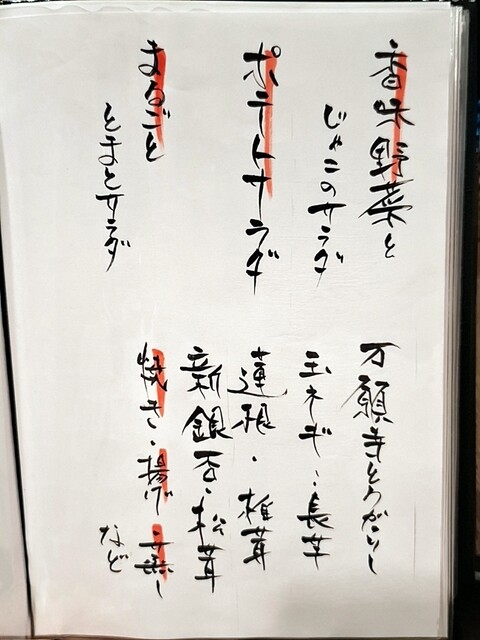 香味野菜と
じゃこのサラダ
ポテトサラダ
まるごと
とまとサラダ
万願寺とうがらし
玉ネギ・長芋
蓮根・椎茸
新銀杏・松茸
焼き・揚げ・蒸し
など